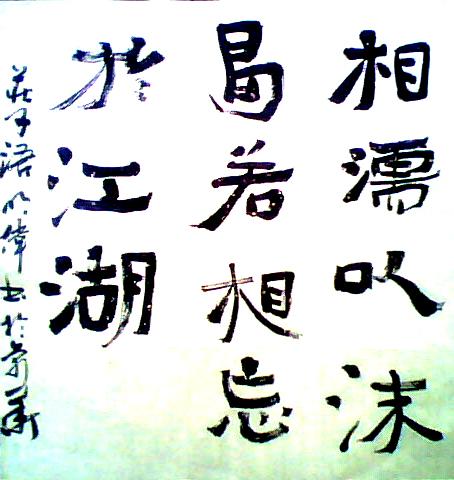 相濡以沫
曷若相忘
於江湖
莊子語明偉书於